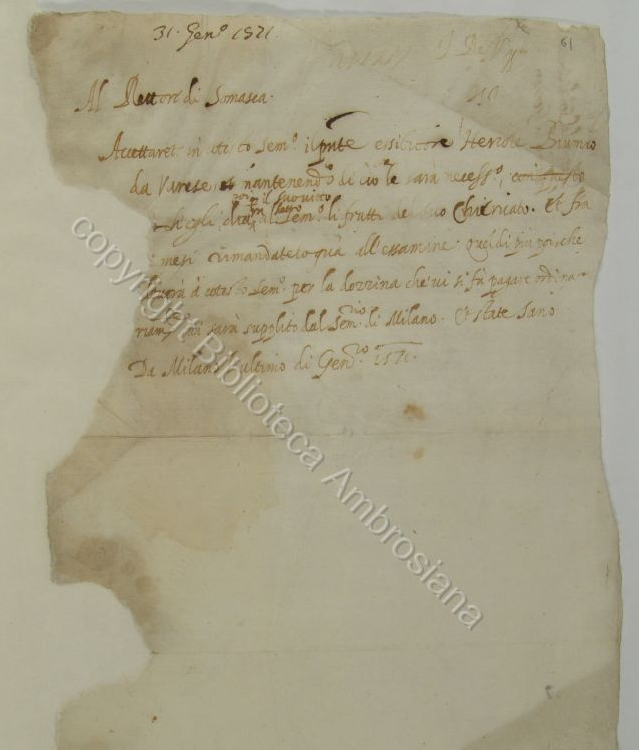 31. Gen.º 1571.
61
Al Rettore di Somasca.
Accettarete in cotesto Sem.º il pnte essibitore Hercole
da Varese, et mantenendolo di ciò le sarà necess.º,
per il suo vitto
egli al Sem.º li frutti del suo Chiericato. Et fra
mesi rimandatelo quà all'essamine. Quel di più poi che
à cotesto Sem.º per la dozzina che vi si fà pagare ordina-
riam.te sarà supplito dal Sem.rio di Milano. Et state sano
Da Milano ultimo di Gen.ro 1571.
copyright Biblioteca Ambrosiana